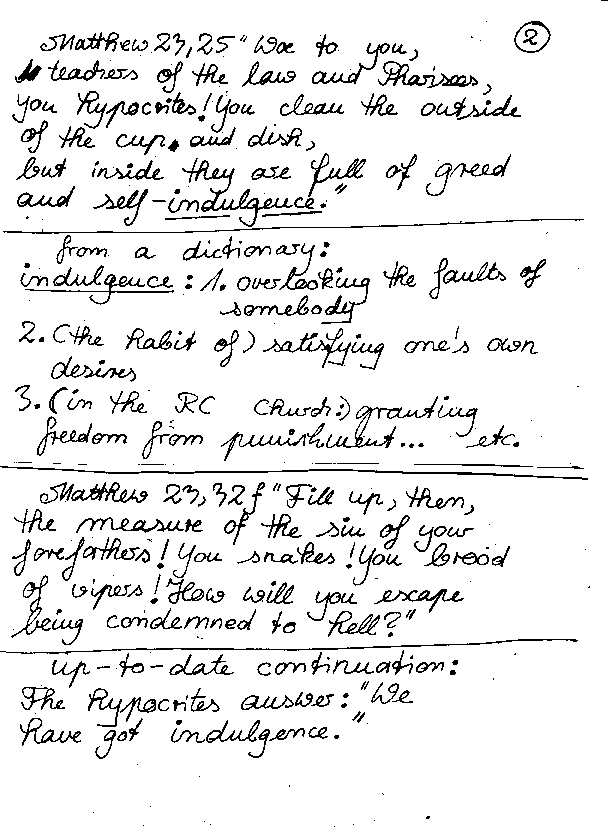 ②
Matthew 23,25 "Woe to you,
teachers of the law and Pharisees,
you hypocrites! You clean the outside
of the cup and dish,
but inside they are full of greed
and self-indulgence."
from a dictionary:
indulgence: 1. overlooking the faults of
somebody
2. (the habit of) satisfying one's own
desires
3. (in the RC Church:) granting
freedom from punishment... etc.
Matthew 23,32f "Fill up, then,
the measure of the sin of your
forefathers! You snakes! You brood
of vipers! How will you escape
being condemned to hell?"
up-to-date continuation:
The hypocrites answer: "We
have got indulgence."